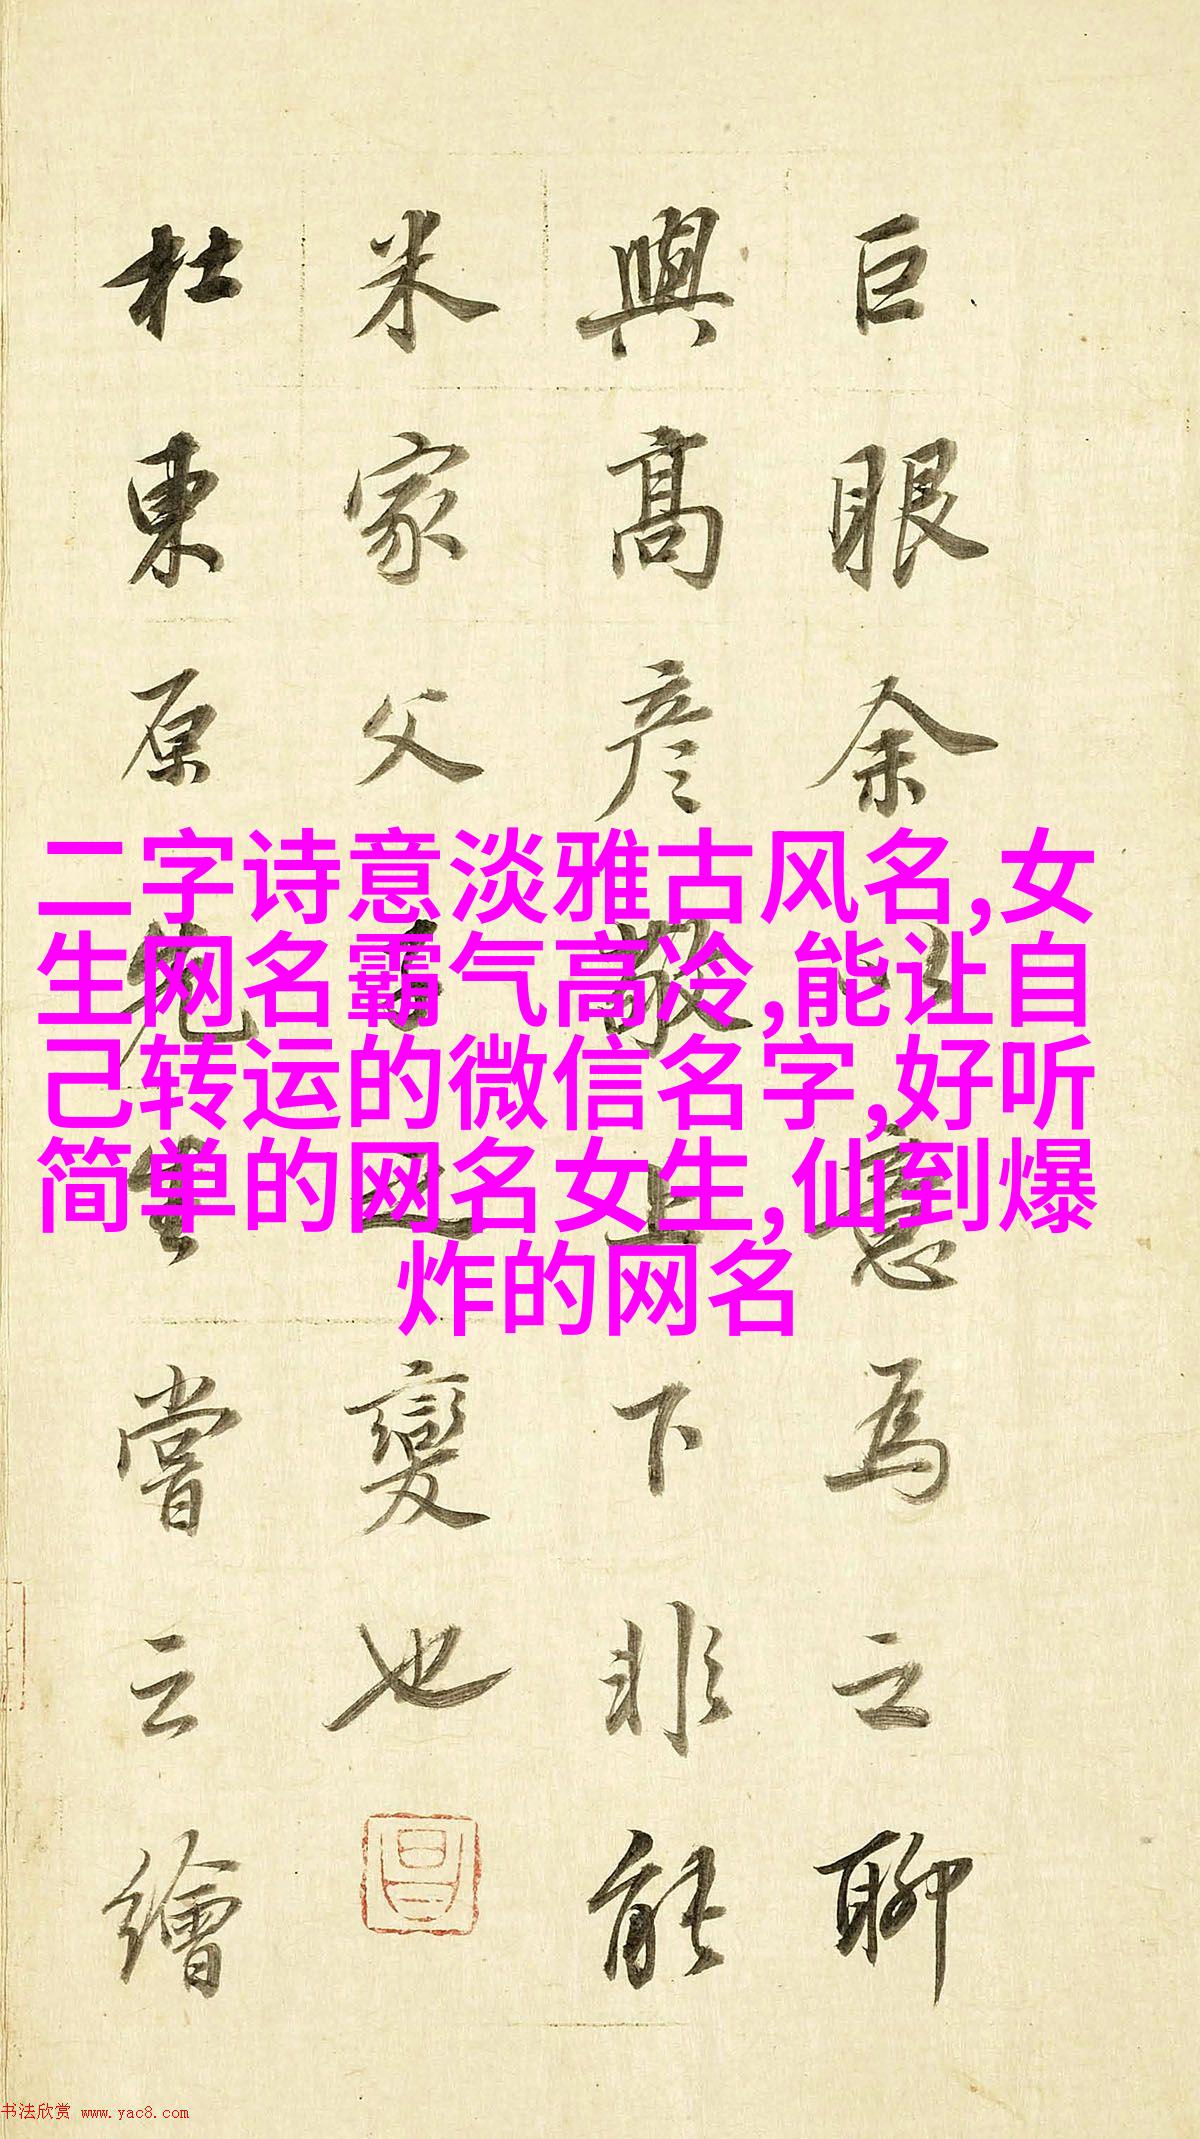 巨眼余以意為之聊
與高彦敬上下非能
米家父子之變也
杜東原先生嘗云繪
二字诗意淡雅古风名,女
生网名霸气高冷,能让自
己转运的微信名字,好听
简单的网名女生,仙到爆
炸的网名
书法欣赏 www.yac8.com